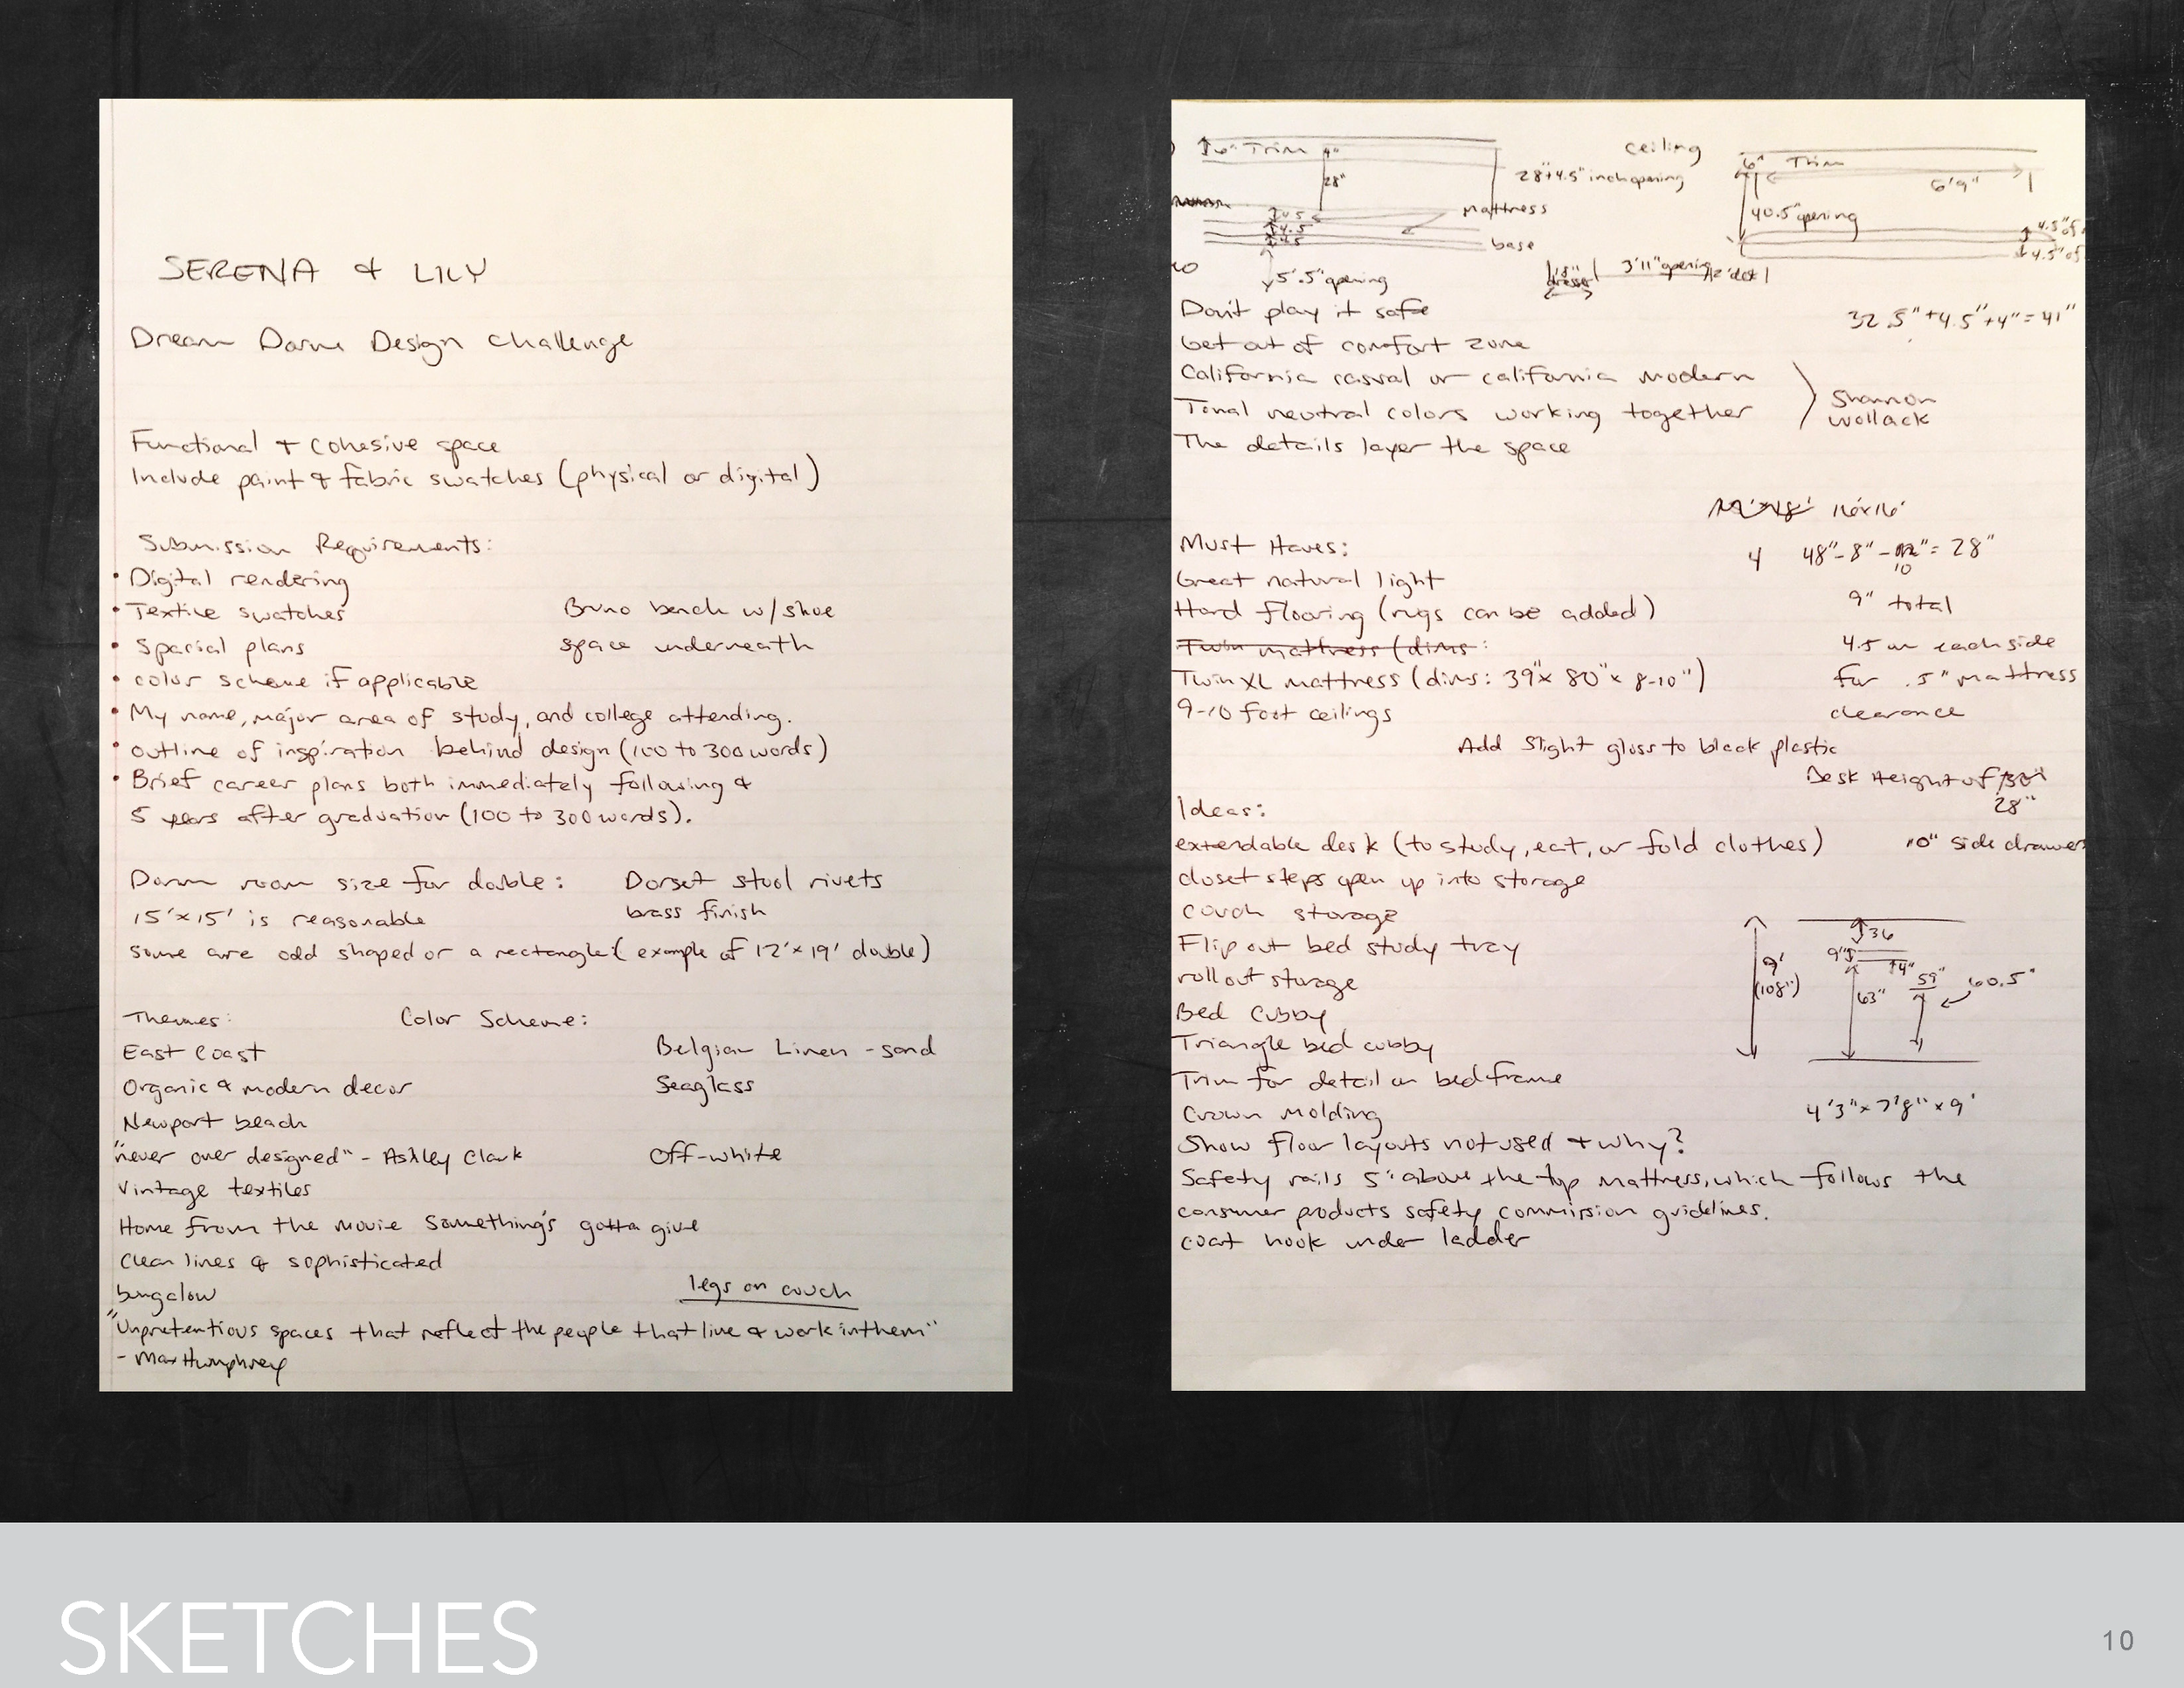 SERENA & LILY
Dream Dorm Design Challenge
Functional & cohesive space
Include paint & fabric swatches (physical or digital)
Submission Requirements:
• Digital rendering
• Textile swatches
• Spacial plans
• color scheme if applicable
• My name, major area of study, and college attending.
• outline of inspiration behind design (100 to 300 words)
• Brief career plans both immediately following &
5 years after graduation (100 to 300 words).
Bruno bench w/shoe
space underneath
Dorm room size for double:
15'x15' is reasonable
some are odd shaped or a rectangle (example of 12'x19' double)
Dorset stool rivets
brass finish
Themes:
East Coast
Organic & modern decor
Newport beach
"never over designed" - Ashley Clark
Vintage textiles
Home from the movie Something's gotta give
Clean lines & sophisticated
bungalow
"Unpretentious spaces that reflect the people that live & work in them"
- Max Humphrey
Color Scheme:
Belgian Linen - sand
Seaglass
Off-white
legs on couch
6" Trim
4"
28"
28"+4.5" inch opening
mattress
base
4.5
4.5
4.5
5'.5" opening
ceiling
6"
Trim
6'9"
40.5" opening
4.5" of
4.5" of
18"
dresser
3'11" opening
32.5"+4.5"+4"=41"
Don't play it safe
Get out of comfort zone
California casual or california modern
Tonal neutral colors working together
The details layer the space
Shannon
Wollack
16'x16'
Must Haves:
Great natural light
Hard flooring (rugs can be added)
Twin mattress (dims:
Twin XL mattress (dims: 39"x 80"x 8-10")
9-10 foot ceilings
4
48"-8"-10"=28"
9" total
4.5 on each side
for .5" mattress
clearance
Add slight gloss to black plastic
Desk Height of 30"
28"
10" side drawer
Ideas:
extendable desk (to study, eat, or fold clothes)
closet steps open up into storage
couch storage
Flip out bed study tray
rollout storage
Bed cubby
Triangle bed cubby
Trim for detail on bedframe
Crown Molding
Show floor layouts not used & why?
Safety rails 5" above the top mattress, which follows the
consumer products safety commission guidelines.
coat hook under ladder
9'
(108")
36
9"
4"
63"
59"
60.5"
4'3"x7'8"x9'
SKETCHES
10